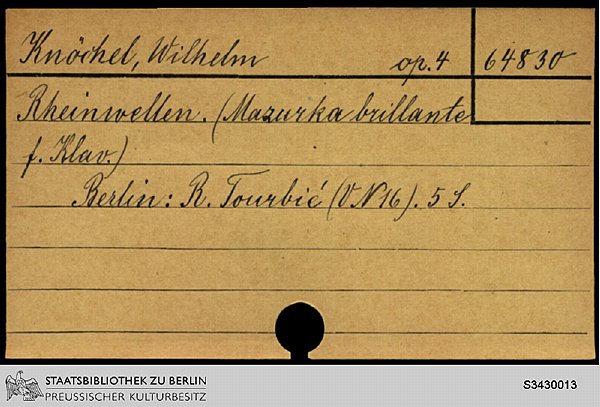 Knöchel, Wilhelm op. 4 64830
Rheinwellen. (Mazurka brillante
f. Klav.)
Berlin: R. Tourbié (VN 16). 5 S.
STAATSBIBLIOTHEK ZU BERLIN
PREUSSISCHER KULTURBESITZ
S3430013